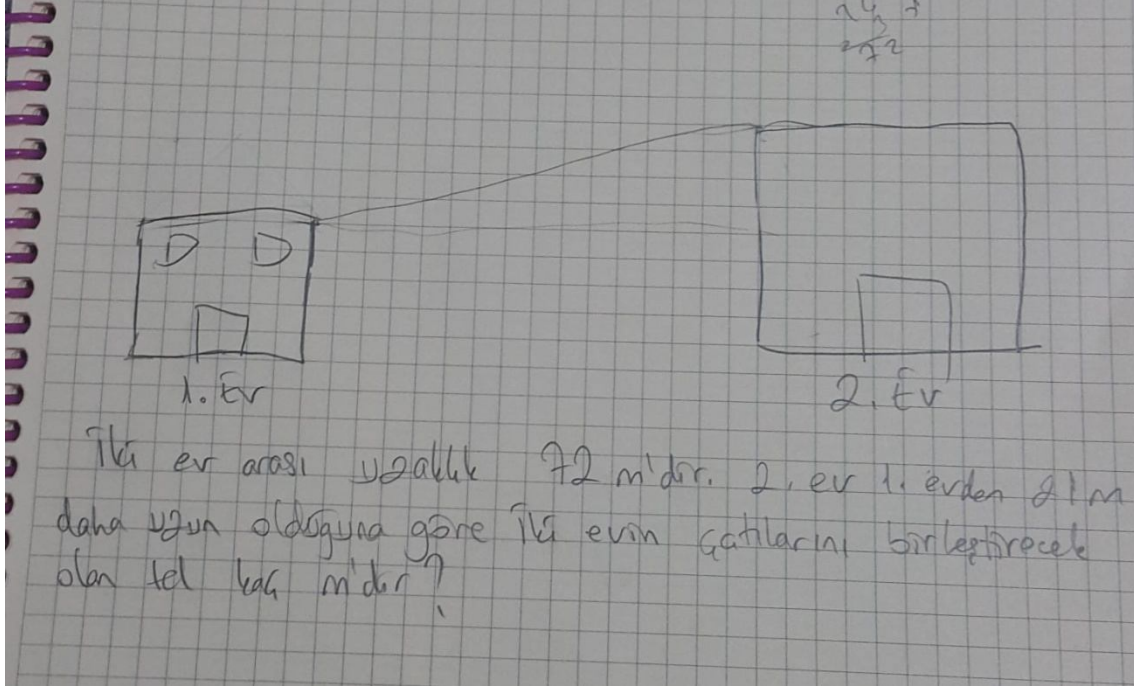 D D
1. Ev
2. Ev
İki ev arası uzaklık 72 m'dir. 2. ev 1. evden 21 m
daha uzun olduğuna göre iki evin çatılarını birleştirecek
olan tel kaç m'dir?